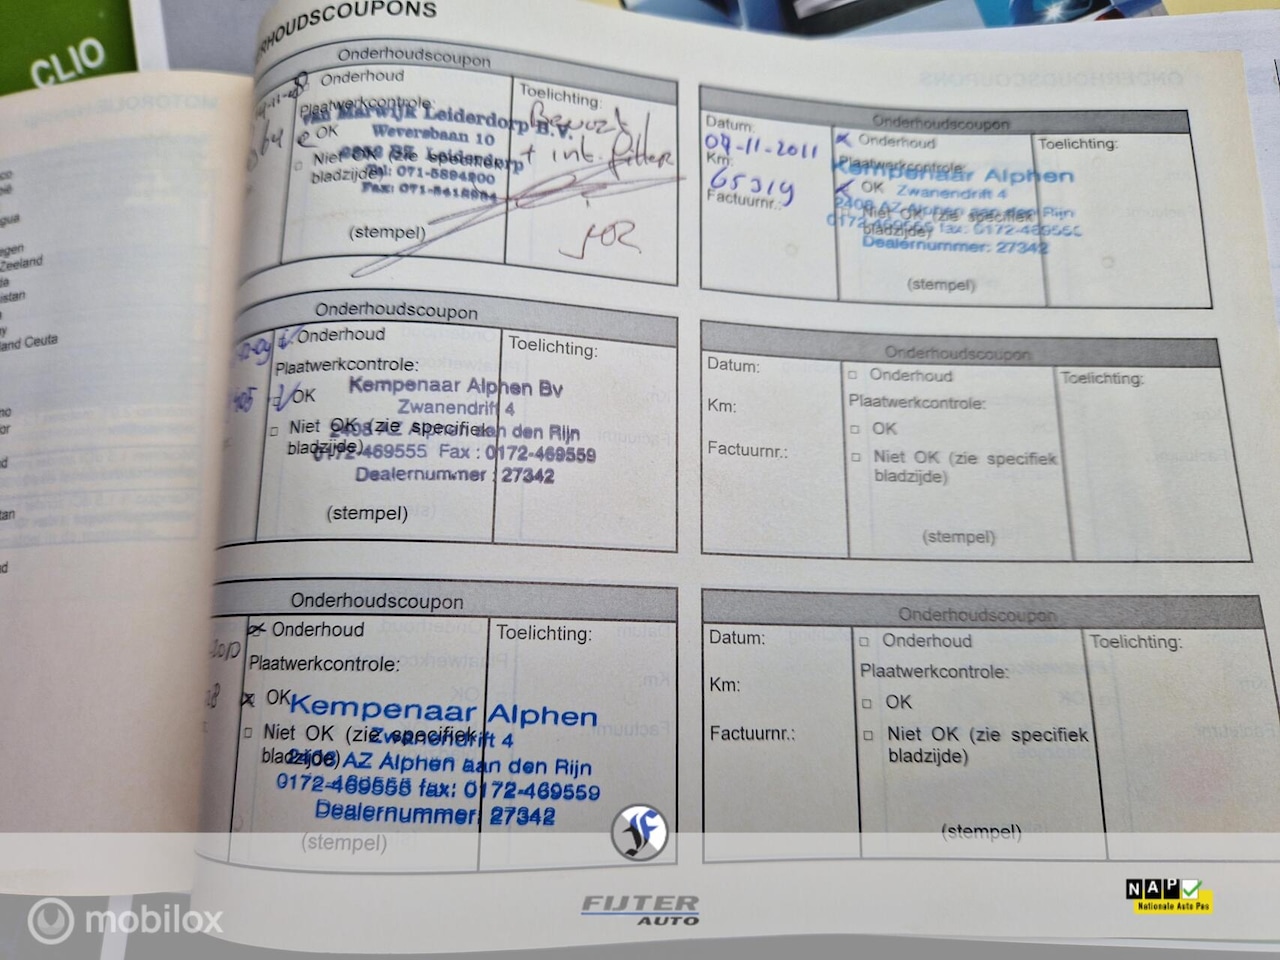 CLIO
RHOUDSCOUPONS
Onderhoudscoupon
Onderhoud
Plaatwerkcontrole:
OK
Niet OK (zie specifiek
bladzijde)
van Marwijk Leiderdorp B.V.
Weversbaan 10
Leiderdorp
Tel: 071-5894200
(stempel)
Toelichting:
+ int. filter
Onderhoudscoupon
Datum:
09-11-2011
Km:
65319
Factuurnr.:
Onderhoud
Plaatwerkcontrole:
OK
Niet OK (zie specifiek
bladzijde)
Kempenaar Alphen
Zwanendrift 4
2408 AZ Alphen aan den Rijn
0172-469555 fax: 0172-469555
Dealernummer: 27342
(stempel)
Toelichting:
Onderhoudscoupon
Onderhoud
Plaatwerkcontrole:
OK
Niet OK (zie specifiek
bladzijde)
Kempenaar Alphen Bv
Zwanendrift 4
2408 AZ Alphen aan den Rijn
0172-469555 Fax : 0172-469559
Dealernummer : 27342
(stempel)
Toelichting:
Onderhoudscoupon
Datum:
Km:
Factuurnr.:
Onderhoud
Plaatwerkcontrole:
OK
Niet OK (zie specifiek
bladzijde)
(stempel)
Toelichting:
Onderhoudscoupon
Onderhoud
Plaatwerkcontrole:
OK
Niet OK (zie specifiek
bladzijde)
Kempenaar Alphen
Zwanendrift 4
2408 AZ Alphen aan den Rijn
0172-469555 fax: 0172-469559
Dealernummer: 27342
(stempel)
Toelichting:
Onderhoudscoupon
Datum:
Km:
Factuurnr.:
Onderhoud
Plaatwerkcontrole:
OK
Niet OK (zie specifiek
bladzijde)
(stempel)
Toelichting:
Zeeland
and Ceuta
mobilox
FIJTER
AUTO
NAP
Nationale Auto Pas